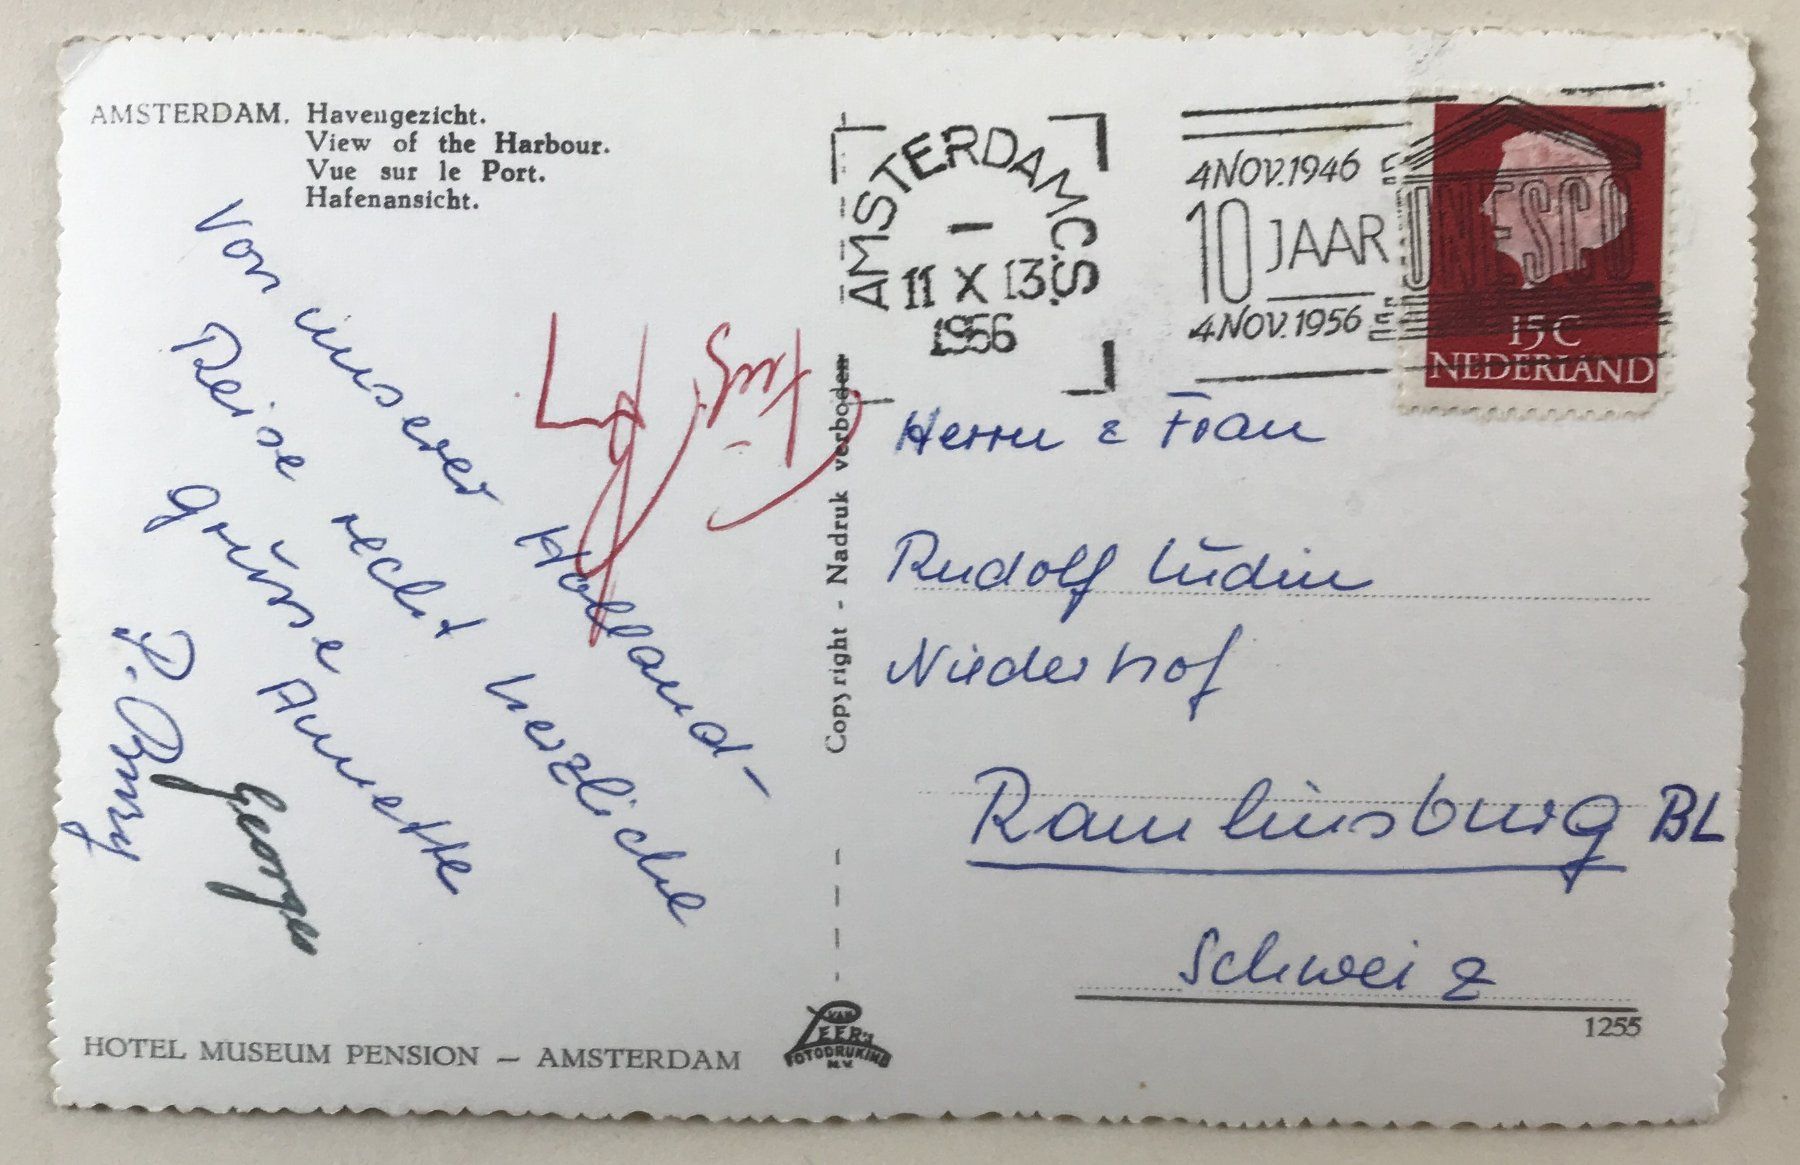 AMSTERDAM. Havengezicht.
View of the Harbour.
Vue sur le Port.
Hafenansicht.
Von unserer Holland-
Reise recht herzliche
Grüsse Annette
Georges
P.
HOTEL MUSEUM PENSION – AMSTERDAM
Copyright - Nadruk verboden
VAN
LEER'S
FOTODRUKIND
N.V.
AMSTERDAM C.S.
11 X 13
1956
4 NOV. 1946
10 JAAR
4 NOV. 1956
UNESCO
15 C
NEDERLAND
Herrn & Frau
Rudolf Lüdin
Niederhof
Ramlinsburg BL
Schweiz
1255